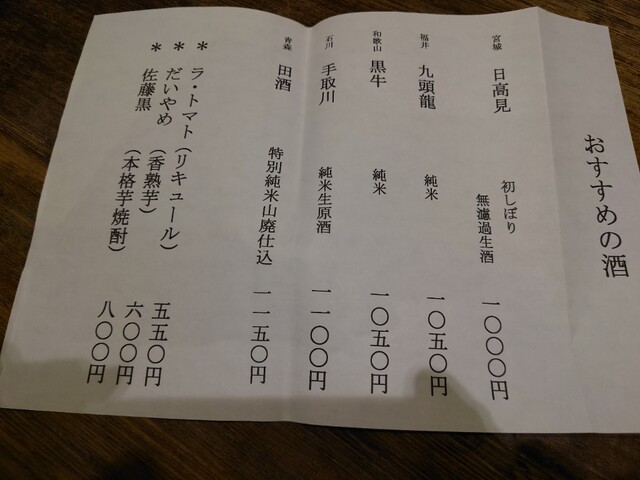 おすすめの酒
宮城 日高見 初しぼり 無濾過生酒 一〇〇〇円
福井 九頭龍 純米 一〇五〇円
和歌山 黒牛 純米 一〇五〇円
石川 手取川 純米生原酒 一一〇〇円
青森 田酒 特別純米山廃仕込 一一五〇円
＊ ラ・トマト（リキュール） 五五〇円
＊ だいやめ（香熟芋） 六〇〇円
＊ 佐藤黒（本格芋焼酎） 八〇〇円